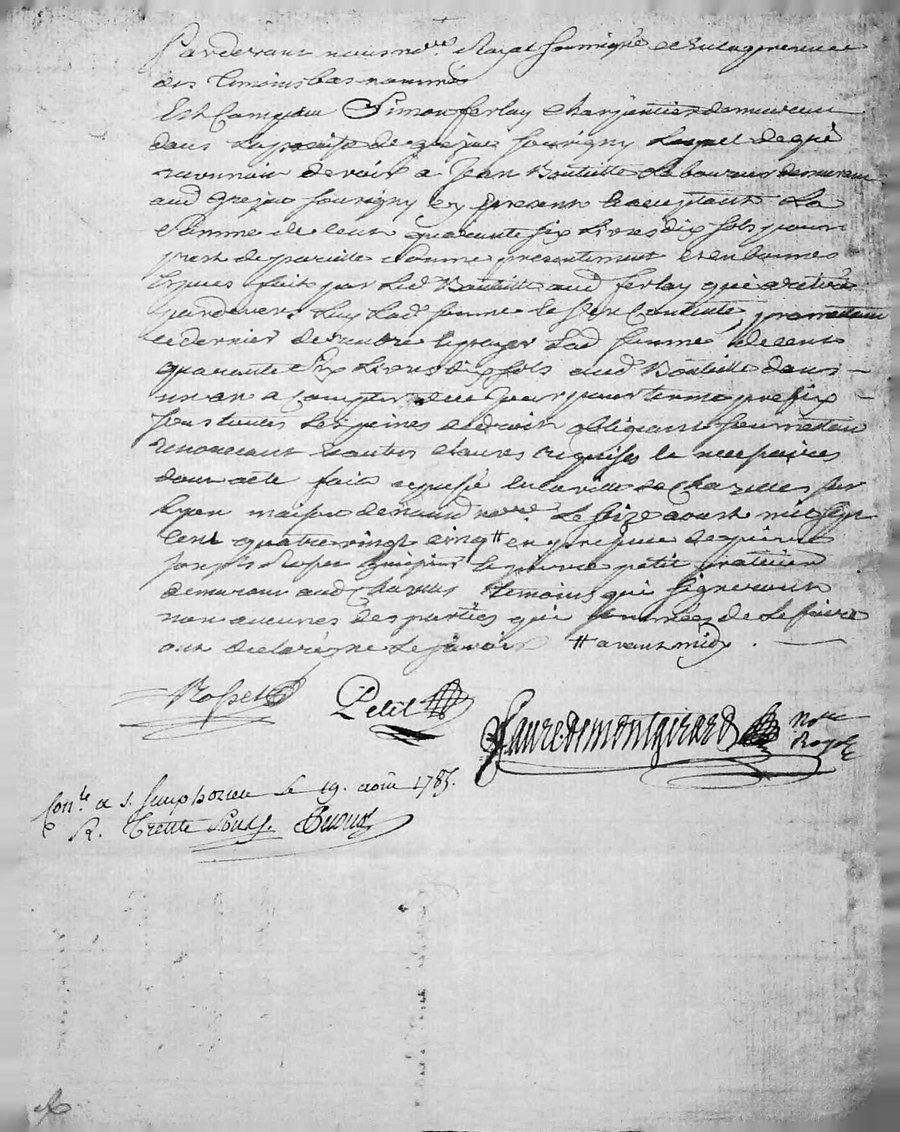 Pardevant nous no.re Royal soussigné et En la presence
des temoins bas nommés
Est Comparu Simon ferlay charpentier demeurant
dans la paroisse de grejeu souvigny Lequel de gré
reconnait devoir a Jean Bouteille Laboureur demeurant
aud Grejeu souvigny cy present et acceptant La
Somme de cent quarante six Livres dix sols pour
prest de pareille somme presentement et en bonnes
Especes fait par Led Bouteille aud ferlay qui a retiré
pardevers Luy Lad somme et s'en Contente, promettant
ce dernier de rendre et payer Lad somme de cent
quarante Six Livres dix sols aud Bouteille dans
un an a Compter de ce Jour pour terme prefix
sous toutes Les peines de droit obligeant soumettant
renonceant et autres clauses requises et necessaires
dont acte fait et passé en la ville de Chazelles sur
Lyon maison denaud no.re Le seize aoust mil sept
cent quatre vingt cinq # en presence de pierre
Joseph Rospet et pierre petit praticien
demeurant aud Chazelles temoins qui signeront
non aucunes des parties qui sommées de Le faire
ont declaré ne Le savoir # avant midy .
Rospet Petit
faure de montgirard No.re Royal
Con.le a S. Simphorien le 19. août 1785.
R. Trente